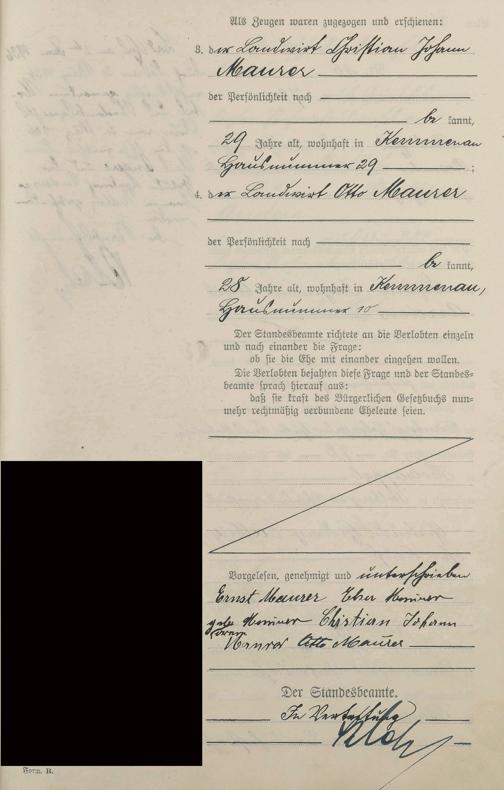 Als Zeugen waren zugezogen und erschienen:
3. der Landwirt Christian Johann
Maurer
der Persönlichkeit nach
be kannt,
29 Jahre alt, wohnhaft in Kemmenau
Hausnummer 29 ;
4. der Landwirt Otto Maurer
der Persönlichkeit nach
be kannt,
28 Jahre alt, wohnhaft in Kemmenau,
Hausnummer 10
Der Standesbeamte richtete an die Verlobten einzeln
und nach einander die Frage:
ob sie die Ehe mit einander eingehen wollen.
Die Verlobten bejahten diese Frage und der Standes-
beamte sprach hierauf aus:
daß sie kraft des Bürgerlichen Gesetzbuchs nun-
mehr rechtmäßig verbundene Eheleute seien.
Vorgelesen, genehmigt und unterschrieben
Ernst Maurer
Christian Johann
Otto Maurer
Der Standesbeamte.
In Vertretung
Form. B.